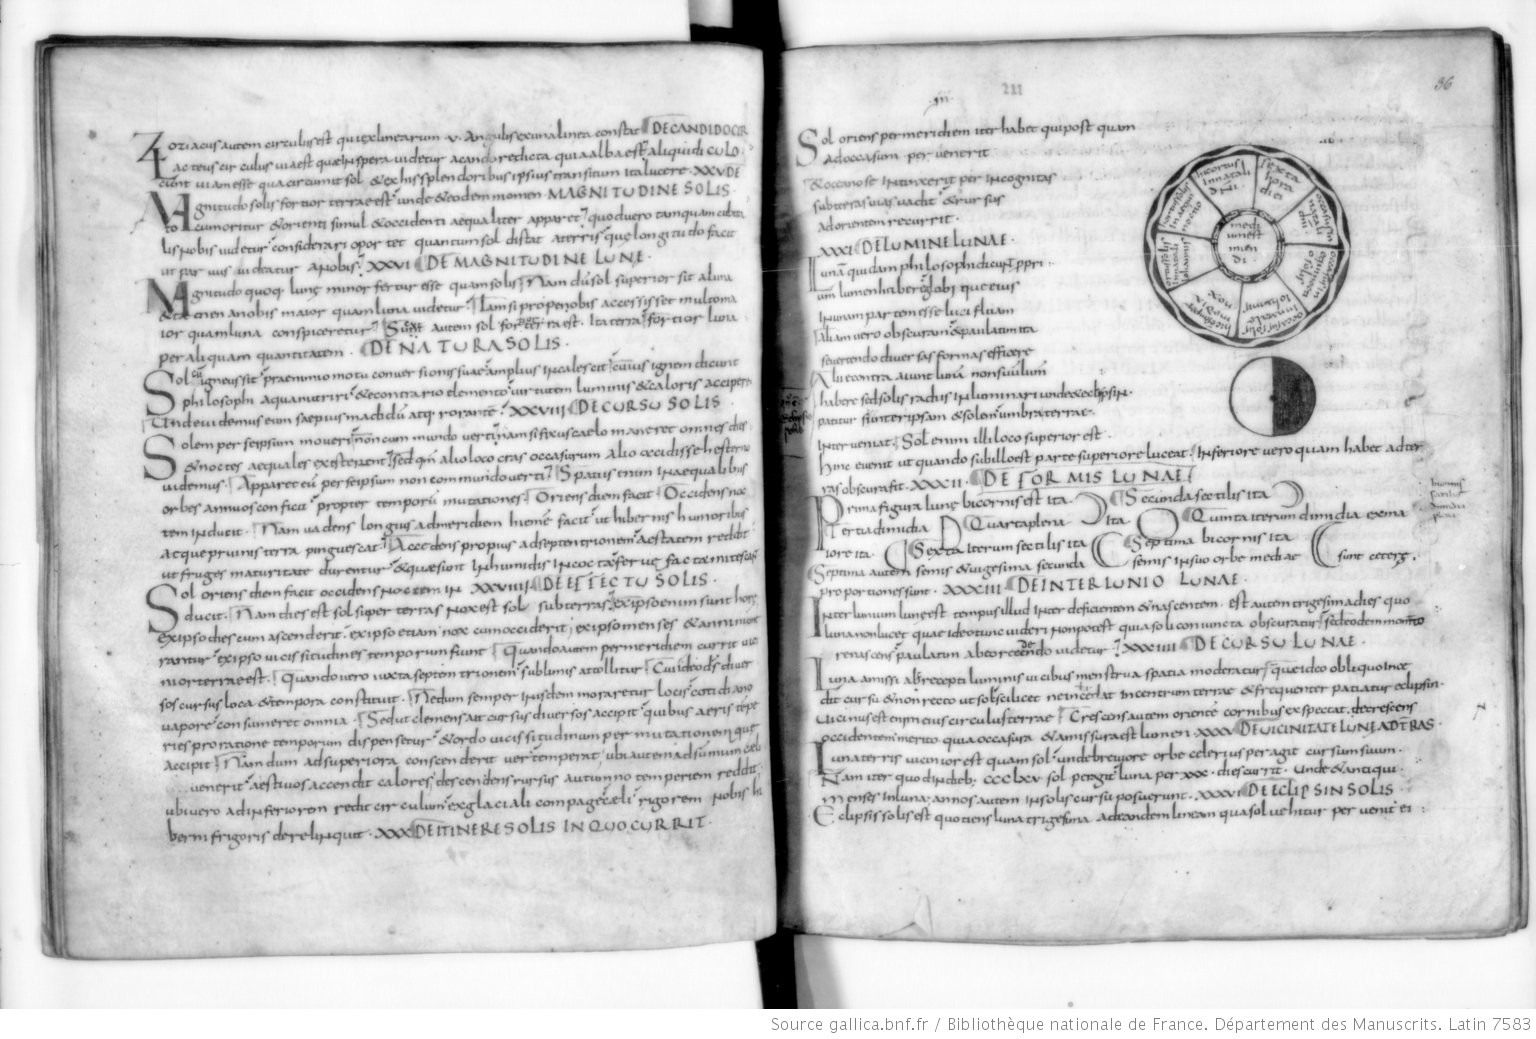 Zodiacus autem circulus est qui ex linearum .v. Angulis ex una linea constat DE CANDIDO CIR
Lacteus circulus uia est quae in spera uidetur a candore dicta quia alba est aliqui di CULO
cunt uiam esse qua circumit sol & ex his splendoribus ipsius transitum ita lucere . XXV DE
Magnitudo solis fortior terrae est unde & eodem momen MAGNITUDINE SOLIS .
to cum oritur & orienti simul & occidenti aequaliter apparet quod uero tamquam cubita
lis nobis uidetur considerari oportet quantum sol distat a terris que longitudo facit
ut paruus uideatur a nobis . XXVI DE MAGNITUDINE LUNE .
Magnitudo quoq lunę minor fertur esse quam solis Nam dū sol superior sit a luna
& tamen a nobis maior quam luna uidetur Iam si prope nobis accessisset multo ma
ior quam luna conspiceretur Sicut autem sol fortior terra est . Ita terra fortior luna
per aliquam quantitatem . DE NATURA SOLIS .
Sol cū igneus sit prae nimio motu conuersionis suae amplius incalescit cuius ignem dicunt
philosophi aqua nutriri & e contrario elemento uirtutem luminis & caloris accipere
Unde uidemus eum saepius madidū atq rorante XXVIII DE CURSU SOLIS .
Solem per se ipsum moueri non cum mundo uerti nam si fixus caelo maneret omnes dies
& noctes aequales existerent sed qm̄ alio loco cras occasurum alio occidisse hesterno
uidemus Apparet eū per se ipsum non cum mundo uerti Spatiis enim inaequalibus
orbes annuos conficit propter temporū mutationes Oriens diem facit Occidens noc
tem inducit . Nam uadens longius ad meridiem hiemē facit ut hibernis humoribus
ac que pruinis terra pinguescat Accedens propius ad septentrionem aestatem reddit
ut fruges maturitate durentur & quae sunt in humidis incocta feruefacta mitescant
Sol oriens diem facit occidens noctem in XXVIIII DE EFFECTU SOLIS .
ducit . Nam dies est sol super terras nox est sol sub terras ex ipso enim sunt horę
ex ipso dies cum ascenderit . ex ipso etiam nox cum occiderit ex ipso menses & anni nume
rantur ex ipso uicissitudines temporum fiunt Quando autem per meridiem currit uici
nior terrae est . Quando uero iuxta septentrionem sublimis attollitur Cui ideo ds̄ diuer
sos cursus loca & tempora constituit . Ne dum semper in isdem moraretur locis cotidiano
uapore consumeret omnia . Sed ut clemens ait cursus diuersos accipit quibus aeris tēpe
ries pro ratione temporum dispensetur & ordo uicissitudinum permutationem que
accipit Nam dum ad superiora conscenderit uer temperat ubi autem ad summum caeli
uenerit aestiuos accendit calores descendens rursus autumno temperiem reddit
ubi uero ad inferiorem redit circulum ex glaciali compage caeli rigorem nobis hi
berni frigoris derelinquit . XXX DE ITINERE SOLIS IN QUO CURRIT .
36
Sol oriens per meridiem iter habet qui postquam
ad occasum peruenerit
& oceano se intinxerit per incognitas
sub terras uias uadit & rursus
ad orientem recurrit .
XXXI DE LUMINE LUNAE .
Lunā quidam philosophi dicunt ppri
um lumen habere globi que eius
unam partem esse lucifluam
aliam uero obscuram & paulatim ita
se uertendo diuersas formas efficere
Alii e contra aiunt lunā non suū lumen
habere sed solis radiis inluminari unde & eclipsin .
patitur si inter ipsam & solem umbra terrae
interueniat Sol enim illi loco superior est .
hinc euenit ut quando sub illo est parte superiore luceat Inferiore uero quam habet ad ter
ras obscura sit . XXXII . DE FORMIS LUNAE
Prima figura lunę bicornis est ita . Secunda sectilis ita
Tertia dimidia Quarta plena ita Quinta iterum dimidia ex ma
iore ita . Sexta iterum sectilis ita Septima bicornis ita
Septima autem semis & uigesima secunda semis in suo orbe mediae sunt ceterę .
proportione sunt . XXXIII DE INTERLUNIO LUNAE .
Interlunium lune est tempus illud inter deficientem & nascentem . est autem trigesima dies quo
luna non lucet quae ideo tunc uideri non potest quia soli coniuncta obscuratur sed eodem momento
renascens paulatim ab eo recedendo uidetur XXXIIII DE CURSU LUNAE .
Luna amissi ac recepti luminis uicibus menstrua spatia moderatur que ideo obliquo ince
dit cursu & non recto ut sol scilicet ne incedat in centrum terrae & frequenter patiatur eclipsin .
Uicinus est enim eius circulus terrae Crescens autem orientē cornibus expectat . decrescens
occidentem merito quia occasura & amissura est lumen . XXXV DE UICINITATE LUNE AD TERRAS
Luna terris uicinior est quam sol unde breuiore orbe celerius peragit cursum suum .
Nam iter quod in dieb; CCCLXV sol peragit luna per XXX . dies currit . Unde & antiqui .
menses in luna; annos autem in solis cursu posuerunt . XXXVI DE ECLIPSIN SOLIS
Eclipsis solis est quotiens luna trigesima ad eandem lineam qua sol uehitur peruenit ei
sexta hora diei
medium est mundi
Source gallica.bnf.fr / Bibliothèque nationale de France. Département des Manuscrits. Latin 7583